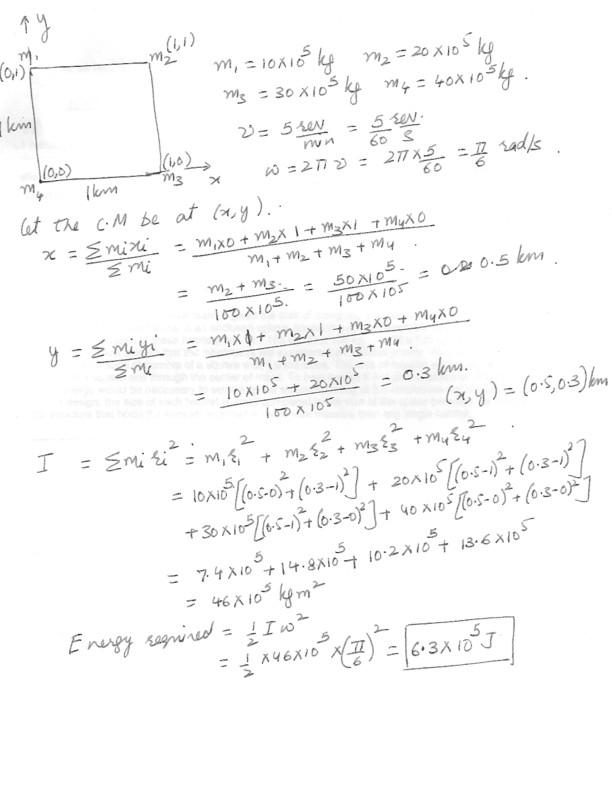 ↑ y
m₁ (0,1)
m₂ (1,1)
1 km
(0,0) m₄
1 km
(1,0) m₃ x
m₁ = 10×10⁵ kg m₂ = 20×10⁵ kg
m₃ = 30×10⁵ kg m₄ = 40×10⁵ kg.
ν = 5 rev/min = 5/60 rev/s.
ω = 2πν = 2π×5/60 = π/6 rad/s.
Let the C.M be at (x,y).
x = Σmixi/Σmi = (m₁×0 + m₂×1 + m₃×1 + m₄×0)/(m₁ + m₂ + m₃ + m₄)
= (m₂ + m₃)/(100×10⁵) = 50×10⁵/100×10⁵ = 0.5 km.
y = Σmiyi/Σmi = (m₁×1 + m₂×1 + m₃×0 + m₄×0)/(m₁ + m₂ + m₃ + m₄)
= (10×10⁵ + 20×10⁵)/(100×10⁵) = 0.3 km.
(x,y) = (0.5,0.3) km
I = Σmiri² = m₁r₁² + m₂r₂² + m₃r₃² + m₄r₄².
= 10×10⁵[(0.5-0)²+(0.3-1)²] + 20×10⁵[(0.5-1)²+(0.3-1)²]
+30×10⁵[(0.5-1)²+(0.3-0)²] + 40×10⁵[(0.5-0)²+(0.3-0)²]
= 7.4×10⁵+14.8×10⁵+10.2×10⁵+13.6×10⁵
= 46×10⁵ kg m²
Energy required = ½ I ω²
= ½ ×46×10⁵ ×(π/6)² = 6.3×10⁵ J